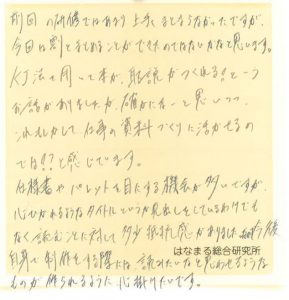 前回の研修ではあまり上手くまとまらなかったですが、
今回は割とまとめることができたのではないかなと思います。
KJ法を用いて本が、取説がつくれる!という
お話がありましたが、確かになーと思いつつ、
これもしかして仕事の資料づくりに活かせるの
では!?と感じています。
仕様書やパレットを目にする機会が多いですが、
心ひかれるようなタイトルというか見出しをしているわけでも
なく読むことに対して多少抵抗感がありました。今後
自身で制作をする際には、読みたいなと思わせるような
ものが作られるように心掛けたいです。
はなまる総合研究所